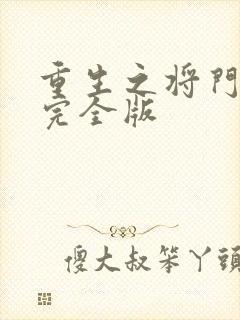 重生之将門
完全版
傻大叔笨丫頭